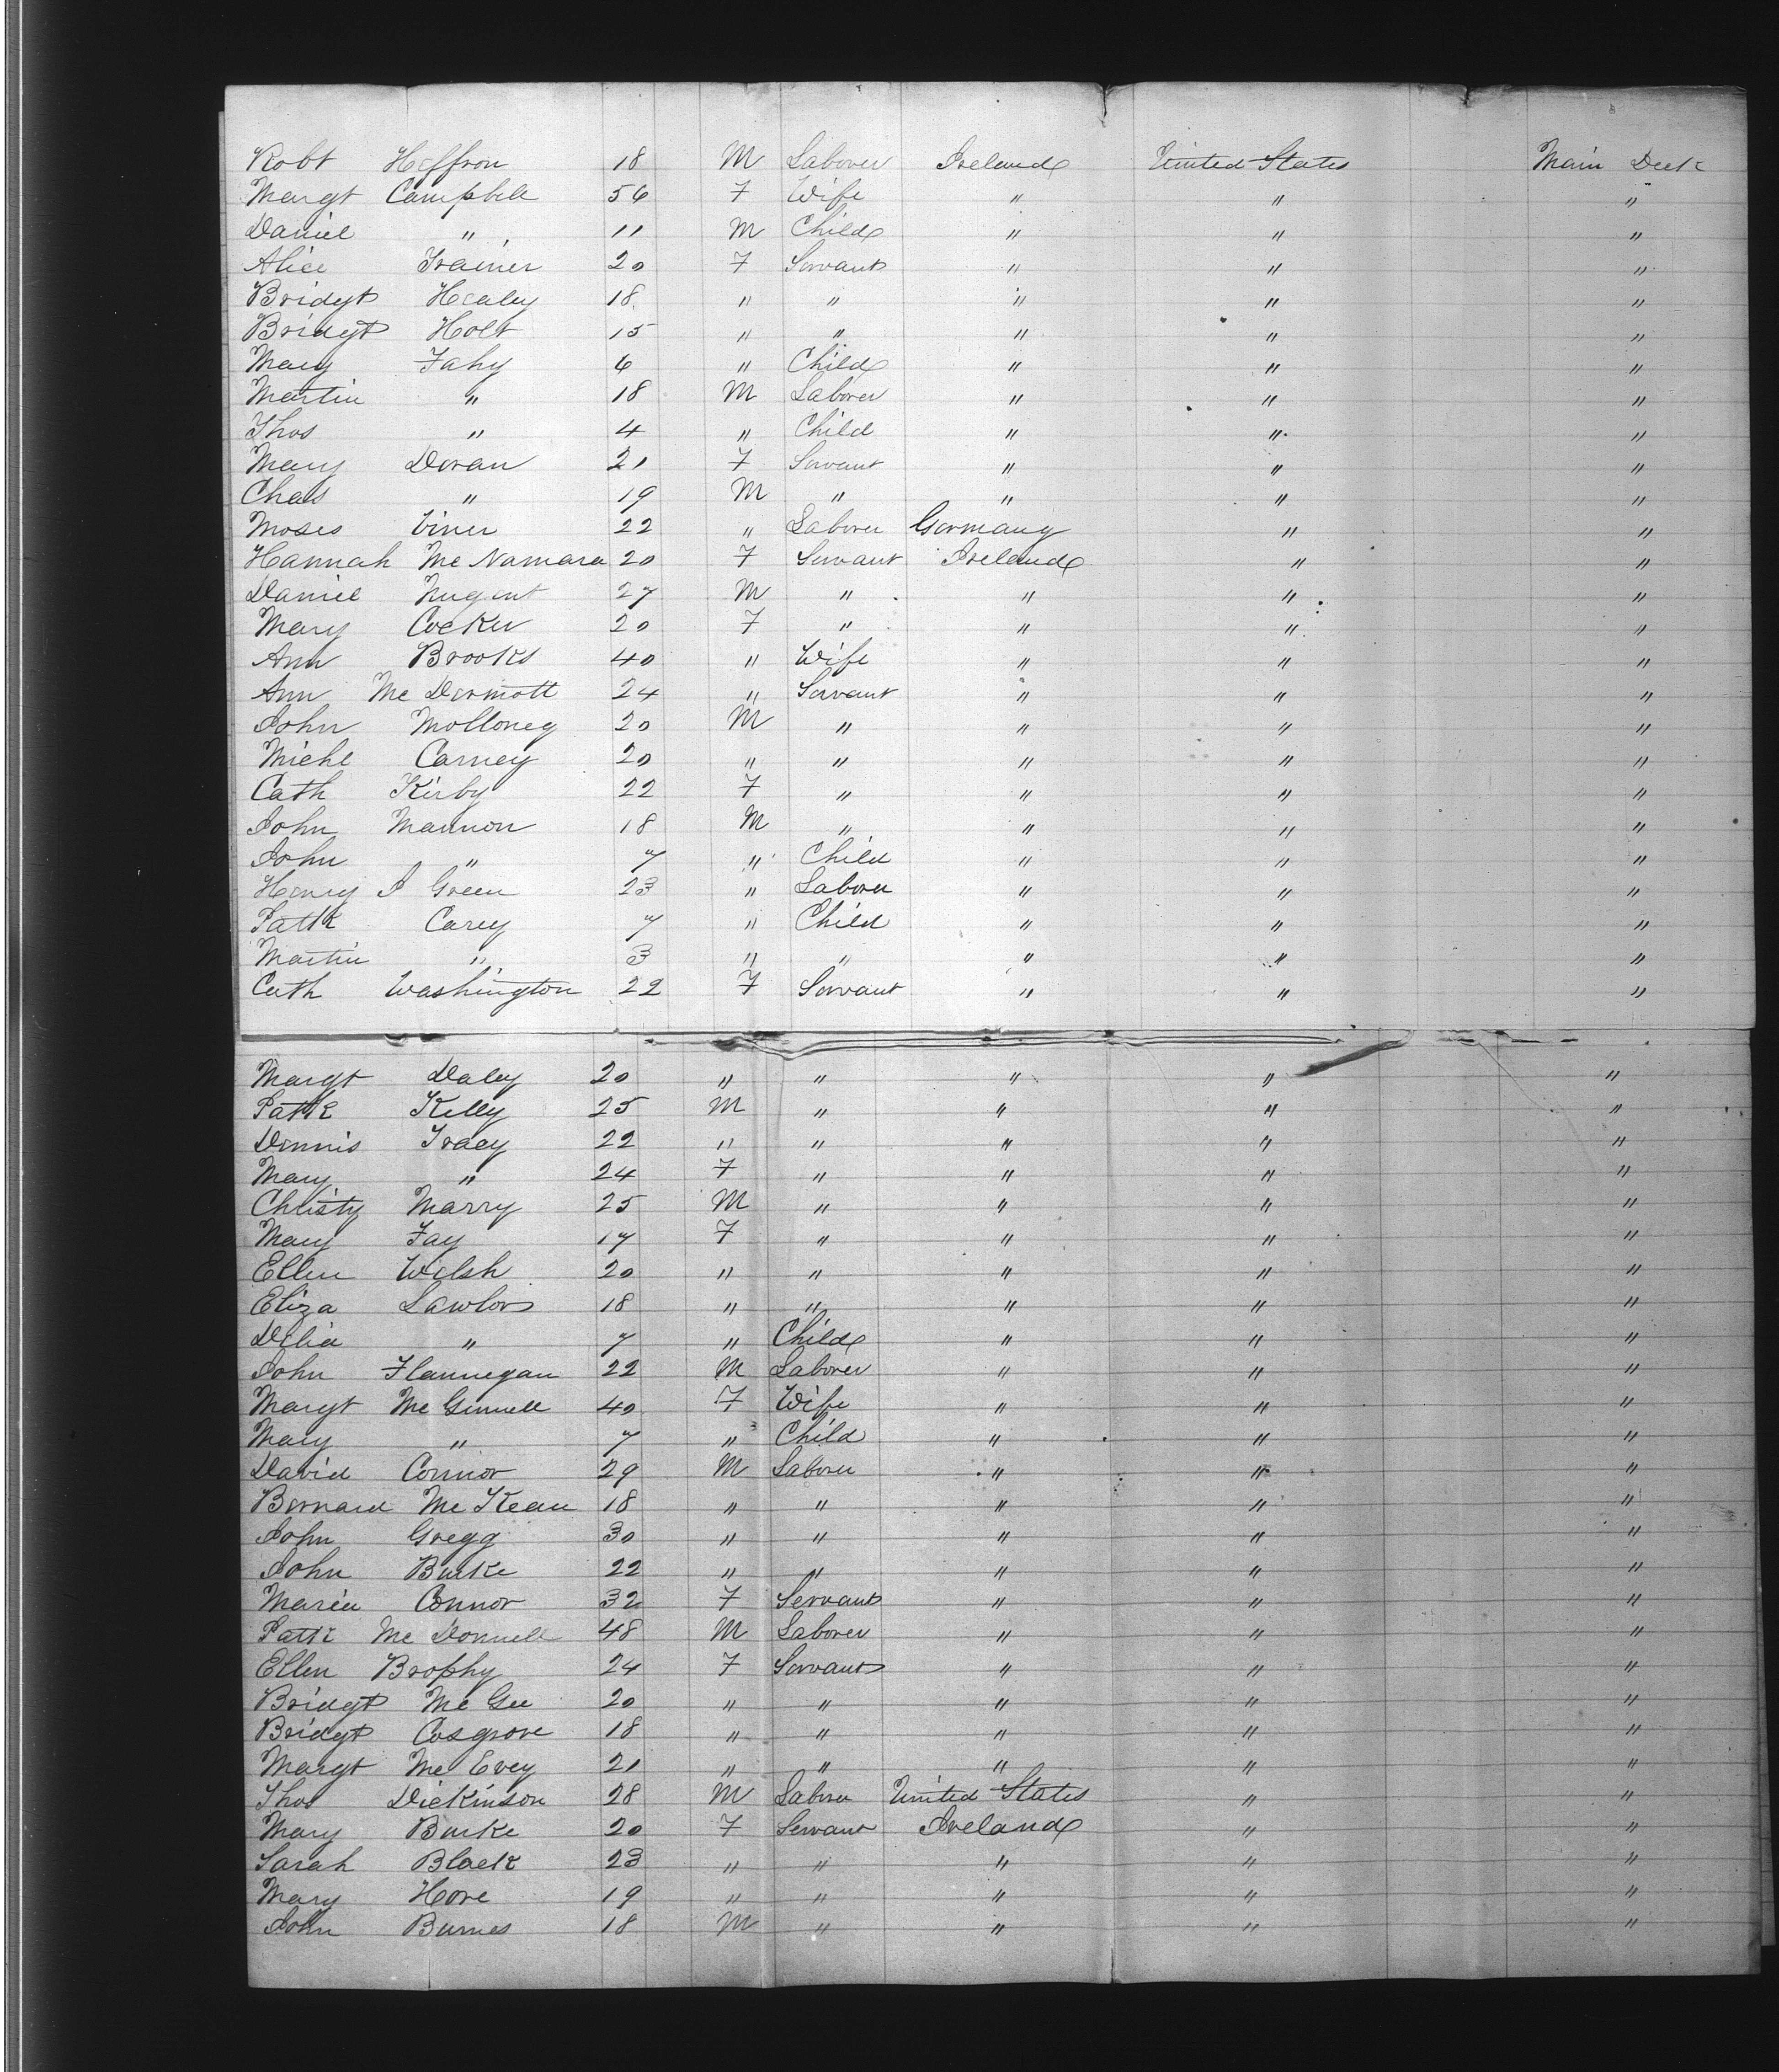 Robt Heffron 18 M Laborer Ireland United States Main Deck
Margt Campbell 56 F Wife " " "
Daniel " 11 M Child " " "
Alice Trainer 20 F Servant " " "
Bridgt Healey 18 " " " " "
Bridgt Holt 15 " " " " "
Mary Fahy 6 " Child " " "
Martin " 18 M Laborer " " "
Thos " 4 " Child " " "
Mary Doran 21 F Servant " " "
Chas " 19 M " " " "
Moses Viner 22 " Laborer Germany " "
Hannah McNamara 20 F Servant Ireland " "
Daniel Nugent 27 M " " " "
Mary Cocker 20 F " " " "
Ann Brooks 40 " Wife " " "
Ann McDermott 24 " Servant " " "
John Molloney 20 M " " " "
Michl Carney 20 " " " " "
Cath Kirby 22 F " " " "
John Mannon 18 M " " " "
John " 7 " Child " " "
Henry J Green 23 " Laborer " " "
Patk Carey 7 " Child " " "
Martin " 3 " " " " "
Cath Washington 22 F Servant " " "
Margt Daley 20 " " " " "
Patk Kelly 25 M " " " "
Dennis Tracy 22 " " " " "
Mary " 24 F " " " "
Christy Marry 25 M " " " "
Mary Fay 17 F " " " "
Ellen Welsh 20 " " " " "
Eliza Lawlor 18 " " " " "
Delia " 7 " Child " " "
John Flannegan 22 M Laborer " " "
Margt McGinnell 40 F Wife " " "
Mary " 7 " Child " " "
David Connor 29 M Laborer " " "
Bernard McKean 18 " " " " "
John Gregg 30 " " " " "
John Burke 22 " " " " "
Maria Connor 32 F Servant " " "
Patk McDonnell 48 M Laborer " " "
Ellen Brophy 24 F Servant " " "
Bridgt McGee 20 " " " " "
Bridgt Cosgrove 18 " " " " "
Margt McEvey 21 " " " " "
Thos Dickinson 28 M Laborer United States " "
Mary Burke 20 F Servant Ireland " "
Sarah Black 23 " " " " "
Mary Hore 19 " " " " "
John Burnes 18 M " " " "